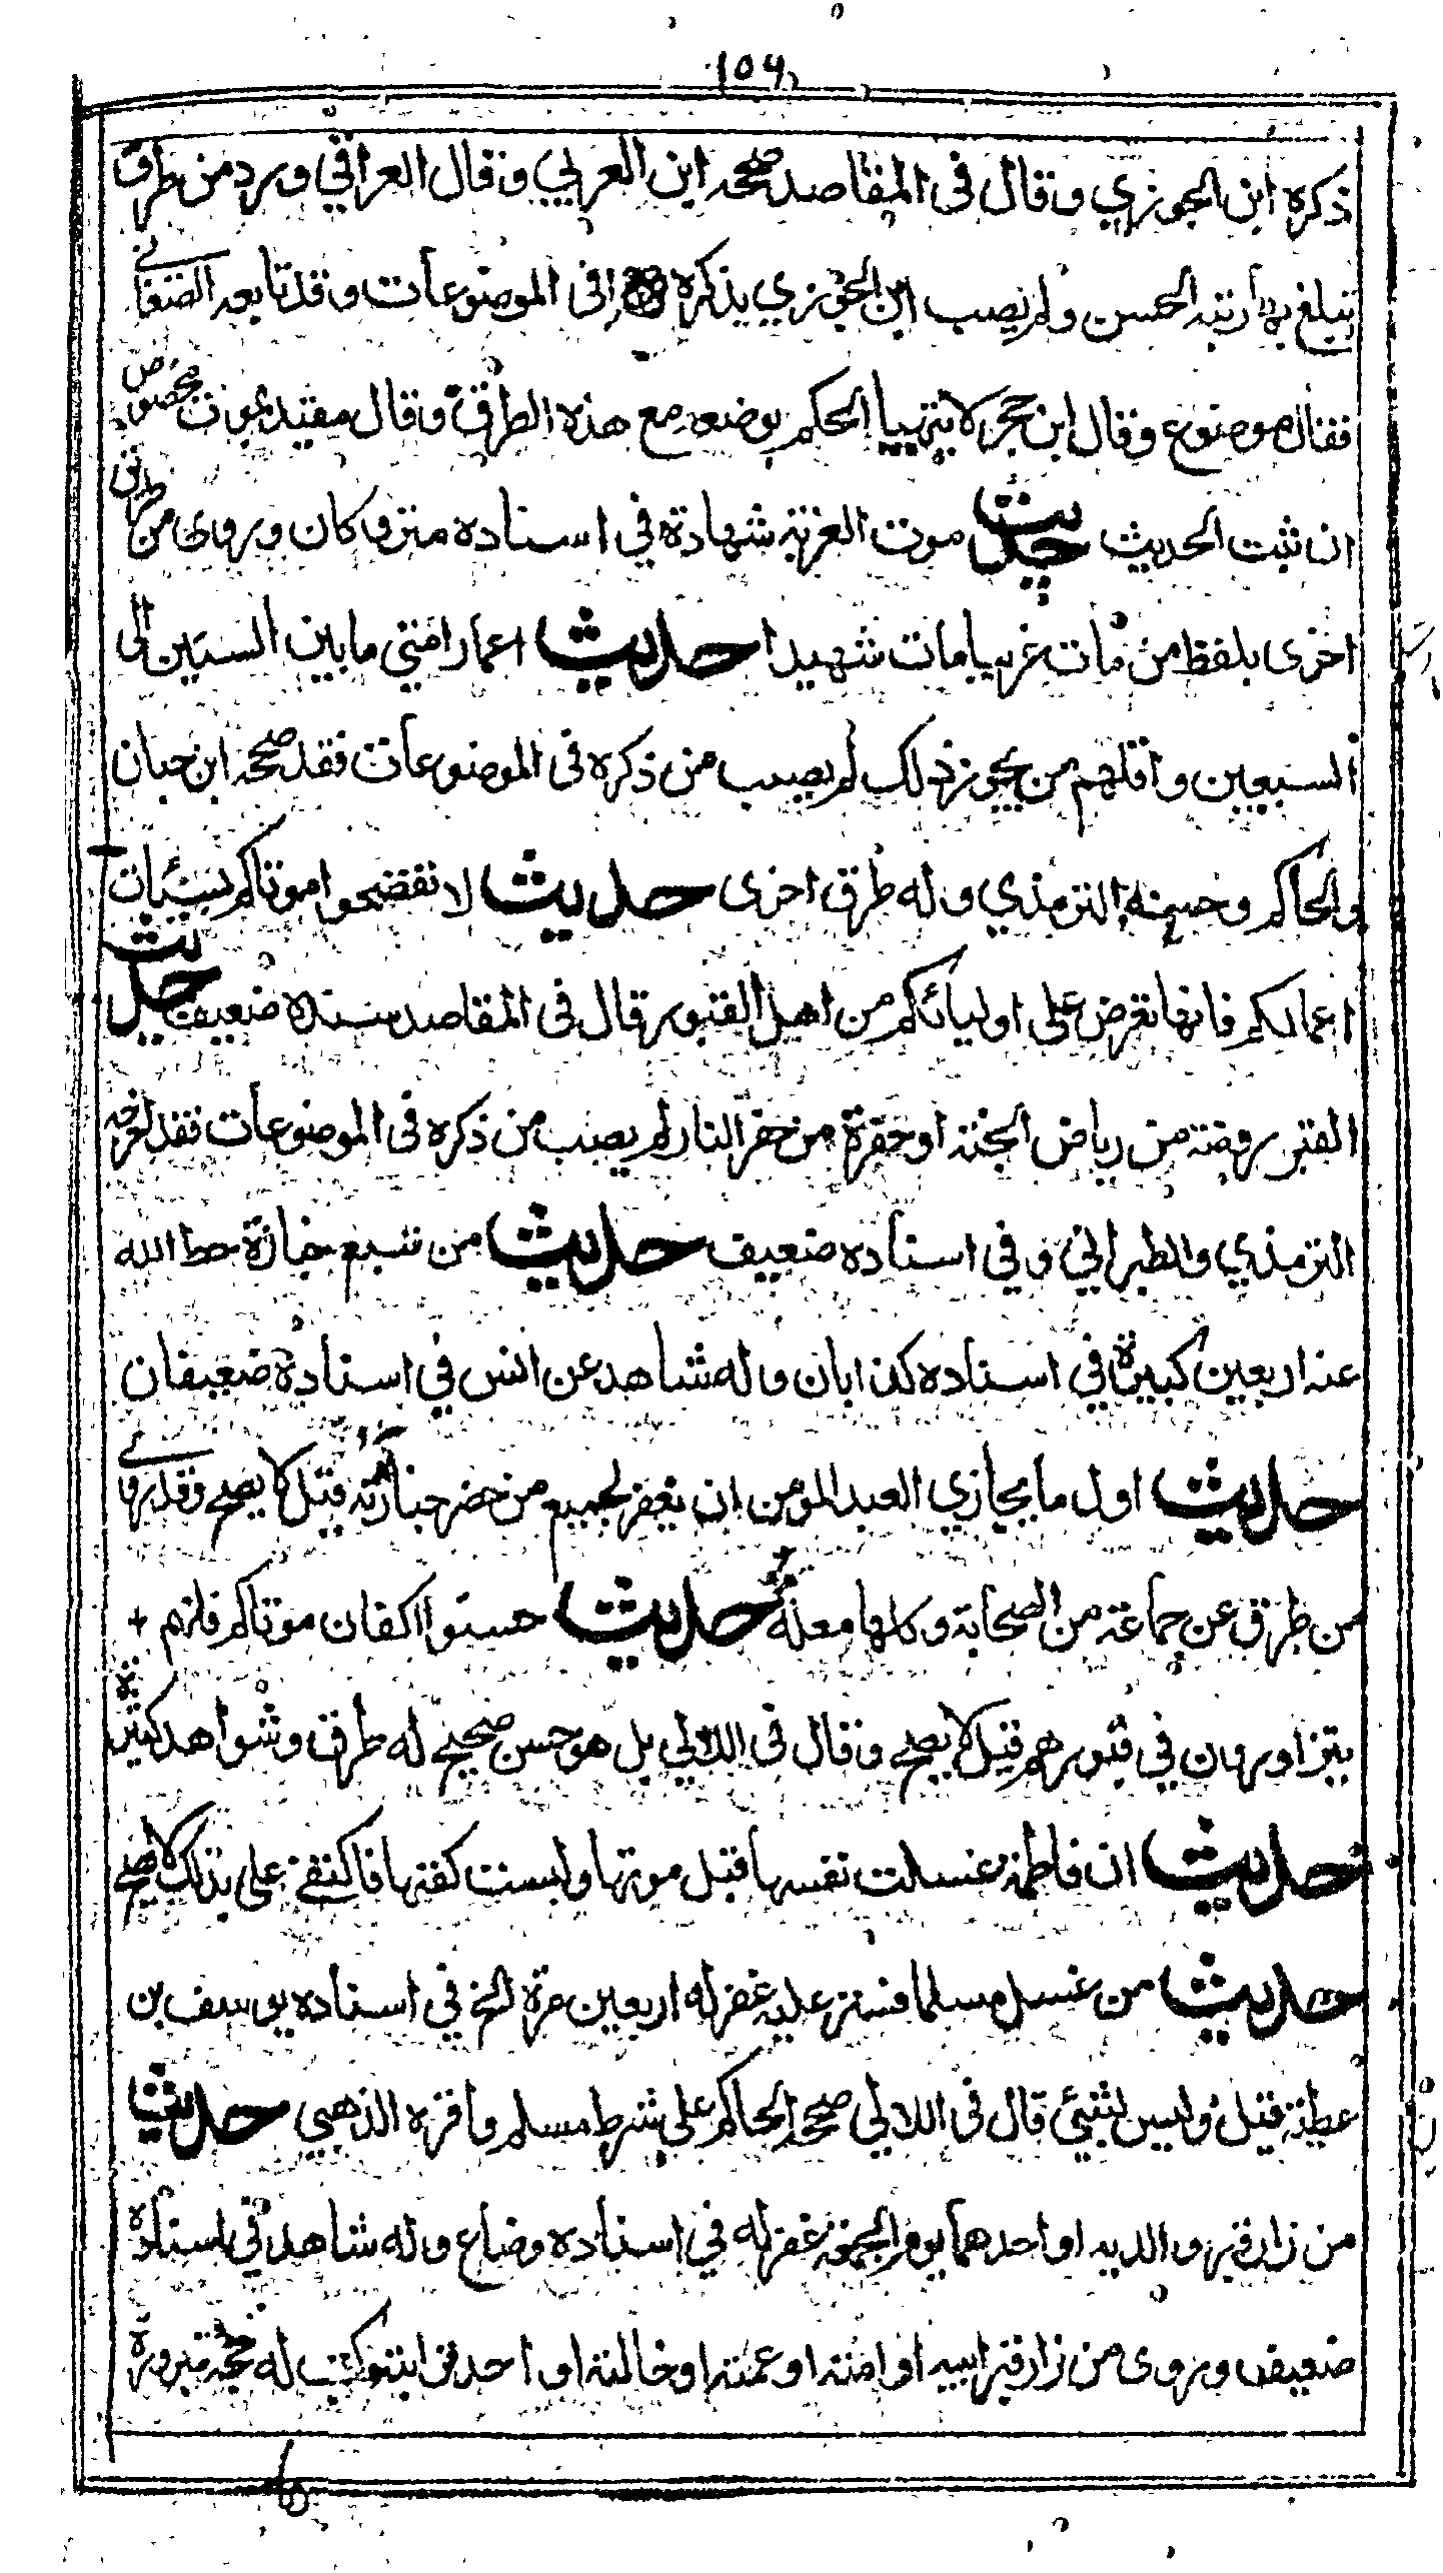 ١٥٩
ذكره ابن الجوزي وقال في المقاصد صححه ابن العربي وقال العراقي ورد من طرق
تبلغ بها رتبة الحسن ولم يصب ابن الجوزي بذكره في الموضوعات وقد تابعه الصغاني
فقال موضوع وقال ابن حجر لا يتهيا الحكم بوضعه مع هذه الطرق وقال مقيد بموت مخصوص
ان ثبت الحديث حديث موت الغربة شهادة في اسناده متروكان وروى من طريق
اخرى بلفظ من مات غريبا مات شهيدا حديث اعمار امتي ما بين الستين الى
السبعين واقلهم من يجوز ذلك لم يصب من ذكره في الموضوعات فقد صححه ابن حبان
والحاكم وحسنه الترمذي وله طرق اخرى حديث لا تفضحوا موتاكم بسيئات
اعمالكم فانها تعرض على اوليائكم من اهل القبور قال في المقاصد سنده ضعيف حديث
القبر روضة من رياض الجنة او حفرة من حفر النار لم يصب من ذكره في الموضوعات فقد اخرجه
الترمذي والطبراني وفي اسناده ضعيف حديث من شيع جنازة حط الله
عنه اربعين كبيرة في اسناده كذابان وله شاهد عن انس في اسناده ضعيفان
حديث اول ما يجازي العبد المومن ان يغفر لجميع من حضر جنازته قيل لا يصح وقد روي
من طرق عن جماعة من الصحابة وكلها معلة حديث حسنوا اكفان موتاكم فانهم
يتزاورون في قبورهم قيل لا يصح وقال في اللالي بل هو حسن صحيح له طرق وشواهد كثيرة
حديث ان فاطمة غسلت نفسها قبل موتها ولبست كفنها فاكتفى علي بذلك لا يصح
حديث من غسل مسلما فستر عليه غفر له اربعين مرة الخ في اسناده يوسف بن
عطية قيل وليس بشيئ قال في اللالي صححه الحاكم على شرط مسلم واقره الذهبي حديث
من زار قبر والديه او احدهما يوم الجمعة غفر له في اسناده وضاع وله شاهد في اسناده
ضعيف وروى من زار قبر ابيه او امه او عمته او خالته او احد من كتب له حجة مبرورة